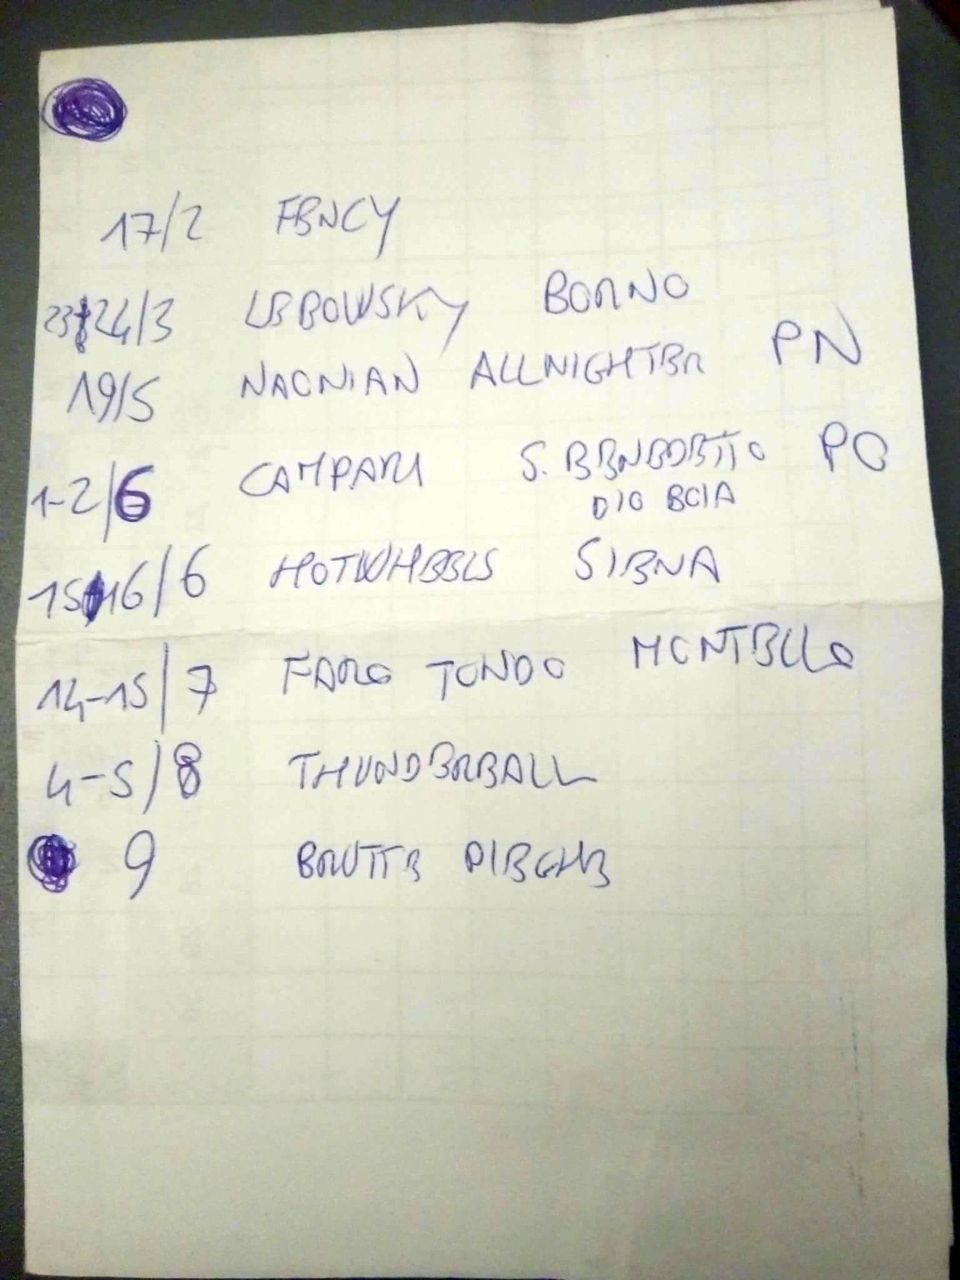 17/2 FENCY
23-24/3 LEBOWSKY BORNO
19/5 NAONIAN ALLNIGHTER PN
1-2/6 CAMPARI S. BENEDETTO PO
DIO BOIA
15-16/6 HOTWHEELS SIENA
14-15/7 FARO TONDO MONTELLO
4-5/8 THUNDERBALL
9 BRUTTE PIEGHE